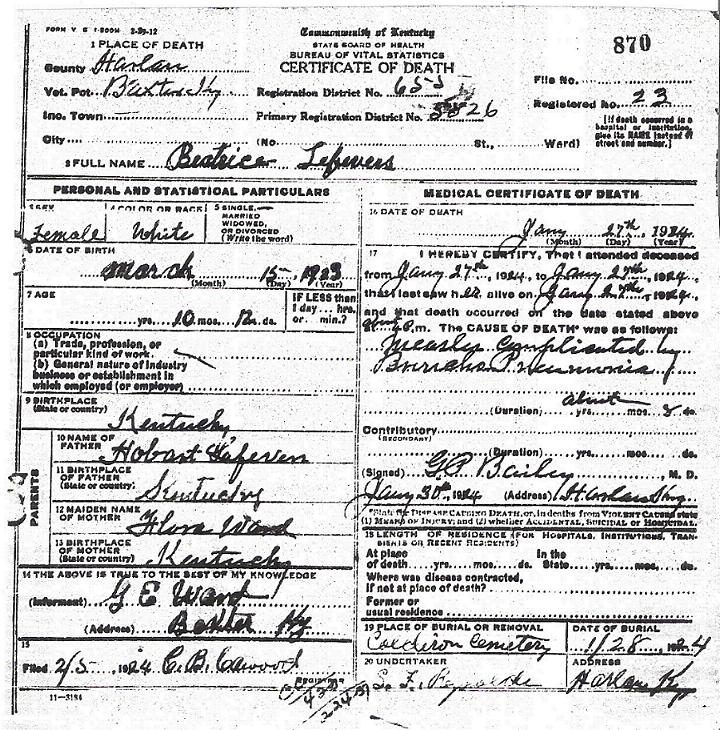 FORM V. S. 1-500M 2-29-12
Commonwealth of Kentucky
STATE BOARD OF HEALTH
BUREAU OF VITAL STATISTICS
CERTIFICATE OF DEATH
870
1 PLACE OF DEATH
County Harlan
Vot. Pct. Baxter Ky.
Inc. Town
City
Registration District No. 655
Primary Registration District No. 5526
(No. St., Ward)
File No.
Registered No. 23
[If death occurred in a hospital or institution, give its NAME instead of street and number.]
2 FULL NAME Beatrice Lefevers
PERSONAL AND STATISTICAL PARTICULARS
3 SEX Female
4 COLOR OR RACE White
5 SINGLE, MARRIED WIDOWED, OR DIVORCED (Write the word)
6 DATE OF BIRTH
March 15 1923
(Month) (Day) (Year)
7 AGE
yrs. 10 mos. 12 ds.
IF LESS than 1 day... hrs. or min.?
8 OCCUPATION
(a) Trade, profession, or particular kind of work.
(b) General nature of industry business or establishment in which employed (or employer)
9 BIRTHPLACE (State or country) Kentucky
PARENTS
10 NAME OF FATHER Hobart Lefevers
11 BIRTHPLACE OF FATHER (State or country) Kentucky
12 MAIDEN NAME OF MOTHER Flora Ward
13 BIRTHPLACE OF MOTHER (State or country) Kentucky
14 THE ABOVE IS TRUE TO THE BEST OF MY KNOWLEDGE
(Informant) G E Ward
(Address) Baxter Ky
15
Filed 2/5 1924 C. B. Cawood
REGISTRAR
11-3184
MEDICAL CERTIFICATE OF DEATH
16 DATE OF DEATH
Jany 27th, 1924
(Month) (Day) (Year)
17 I HEREBY CERTIFY, That I attended deceased
from Jany 27th, 1924, to Jany 27th, 1924,
that I last saw her alive on Jany 27th, 1924,
and that death occurred on the date stated above
m. The CAUSE OF DEATH* was as follows:
Measles complicated by
Pneumonia
about
(Duration) yrs. mos. 8 ds.
Contributory
(SECONDARY)
(Duration) yrs. mos. ds.
(Signed) G.P. Bailey M. D.
Jany 30th, 1924 (Address)
*State the DISEASE CAUSING DEATH, or, in deaths from VIOLENT CAUSES state
(1) MEANS OF INJURY; and (2) whether ACCIDENTAL, SUICIDAL or HOMICIDAL.
18 LENGTH OF RESIDENCE (FOR HOSPITALS, INSTITUTIONS, TRANSIENTS OR RECENT RESIDENTS)
At place of death yrs. mos. ds. In the State yrs. mos. ds.
Where was disease contracted,
if not at place of death?
Former or
usual residence
19 PLACE OF BURIAL OR REMOVAL
Coldiron Cemetery
DATE OF BURIAL
1/28, 1924
20 UNDERTAKER
S. F. Reynolds
ADDRESS
Harlan Ky